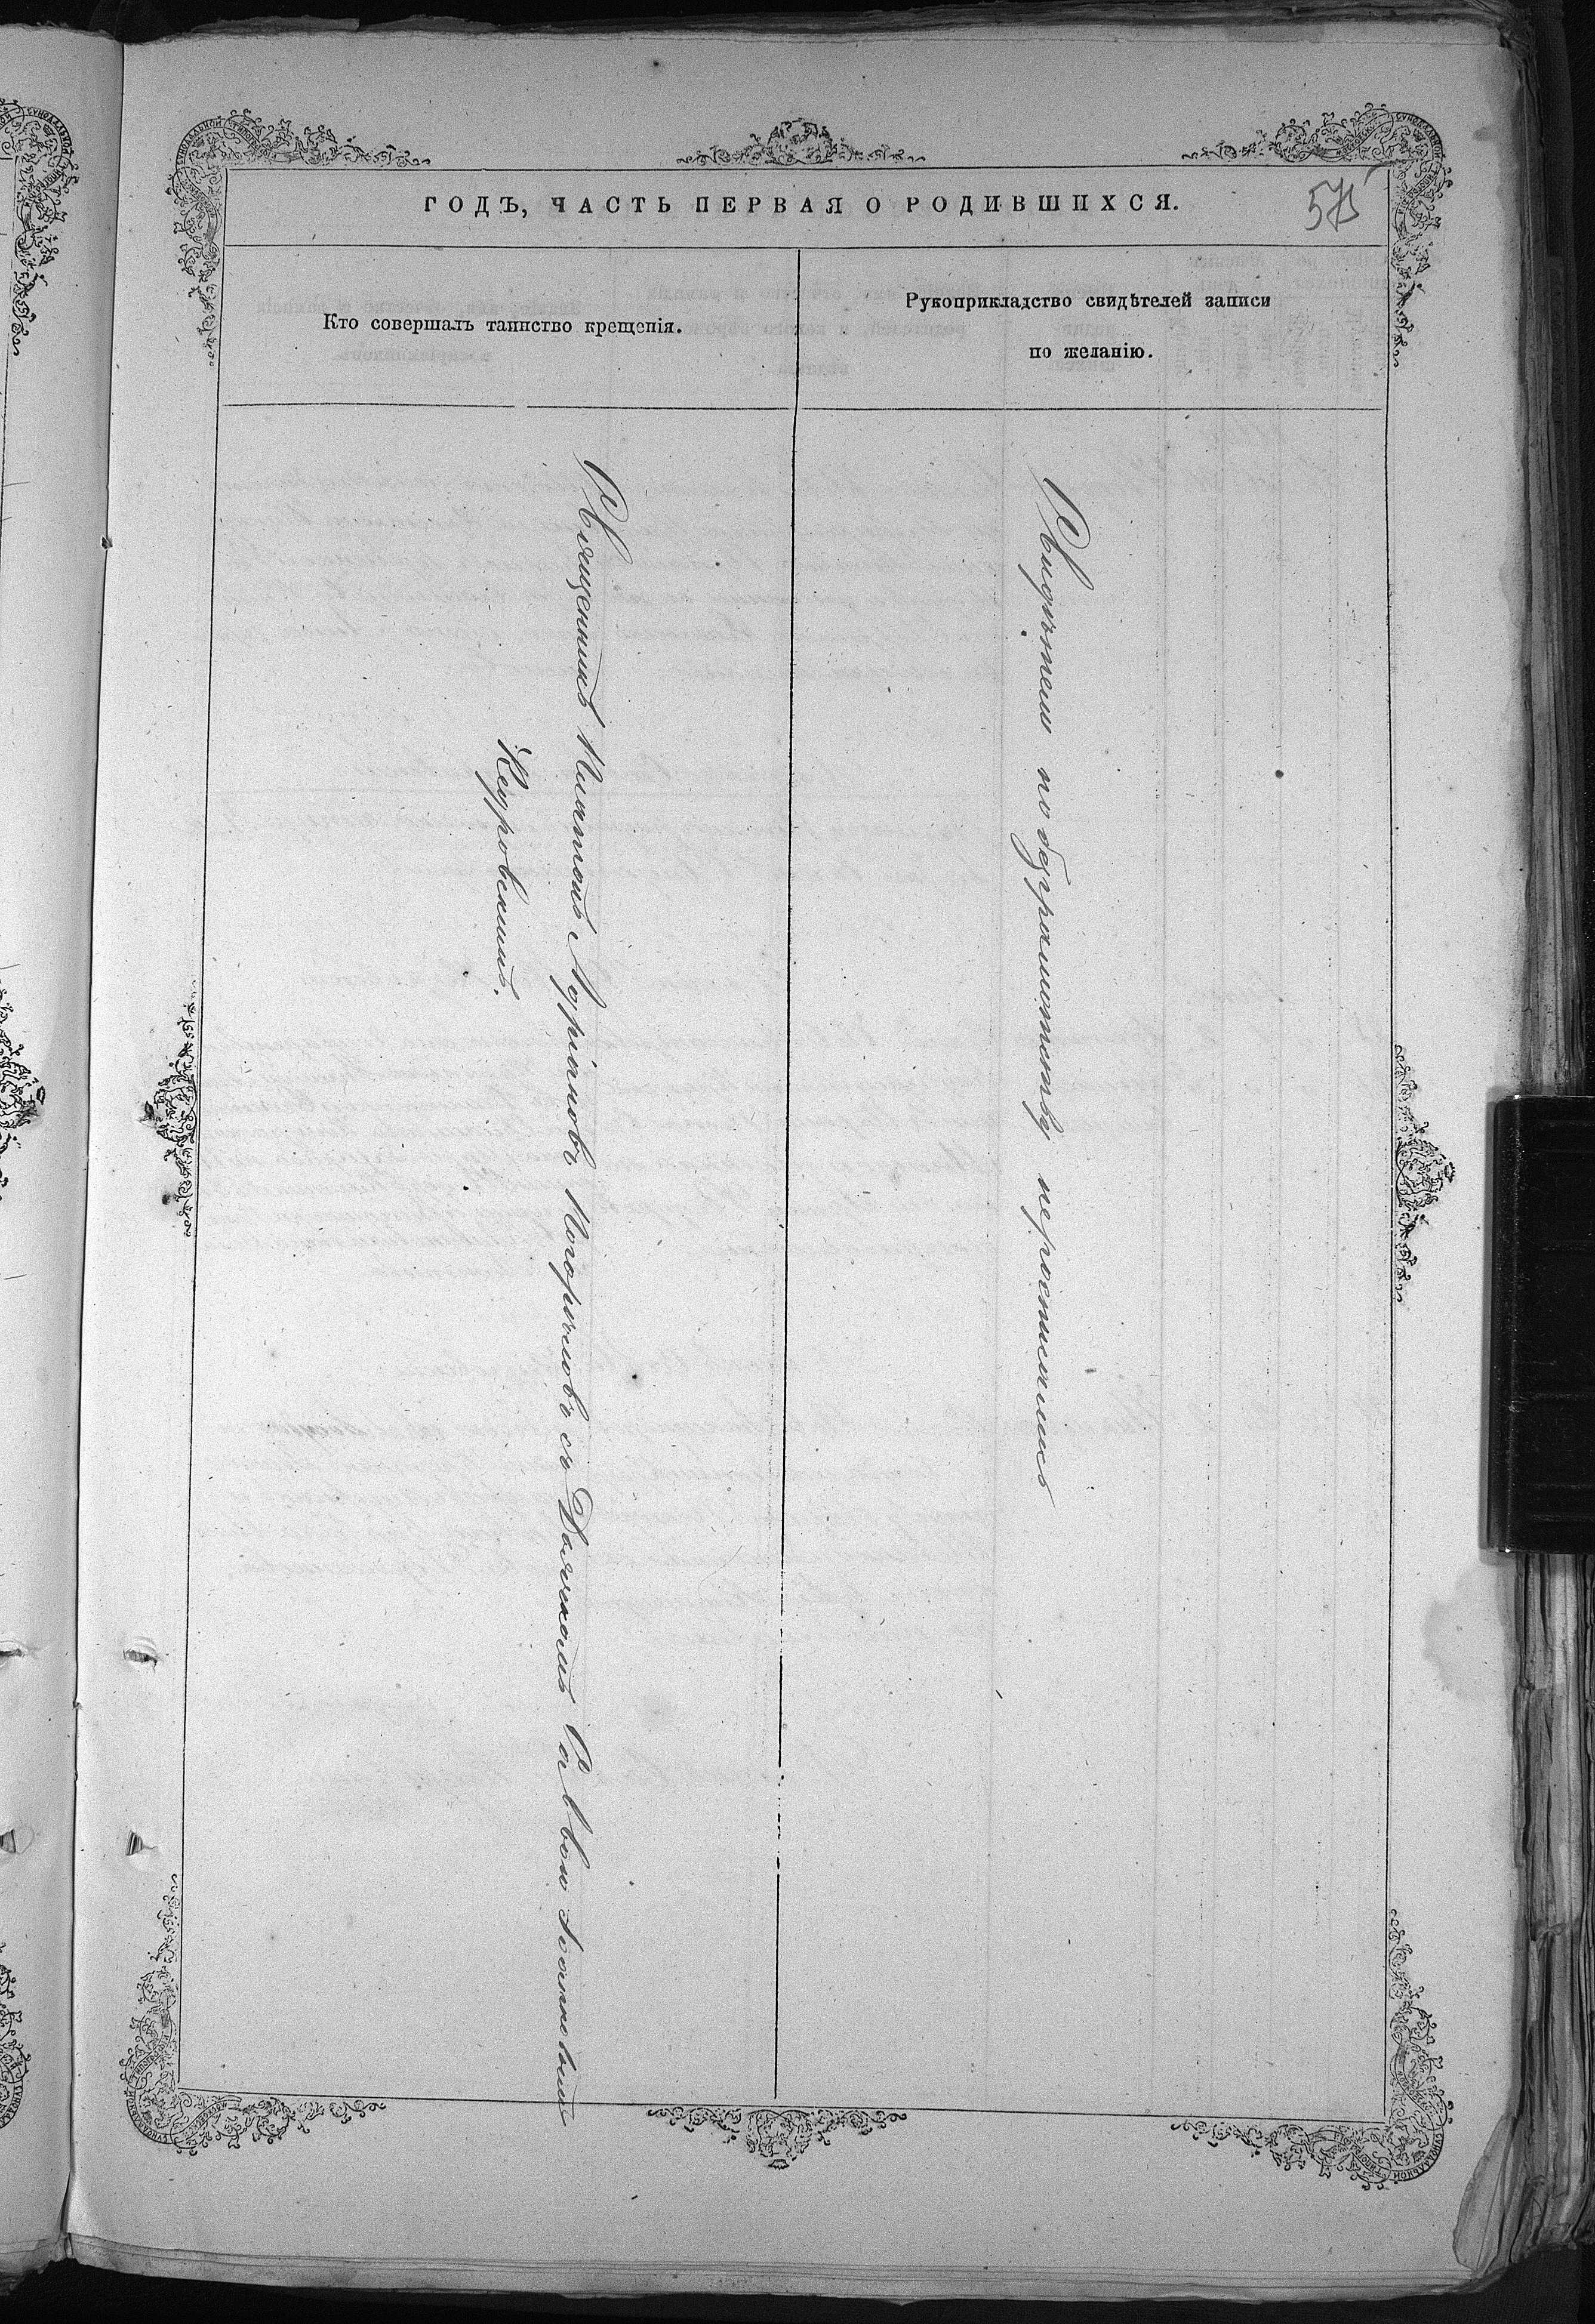 ГОДЪ, ЧАСТЬ ПЕРВАЯ О РОДИВШИХСЯ.
Кто совершалъ таинство крещенія.
Рукоприкладство свидѣтелей записи
по желанію.
Священникъ Платонъ Адріановъ Погорѣловъ съ Дьячкомъ Саввою
Кедровскимъ.
Свидѣтели по безграмотству неросписались